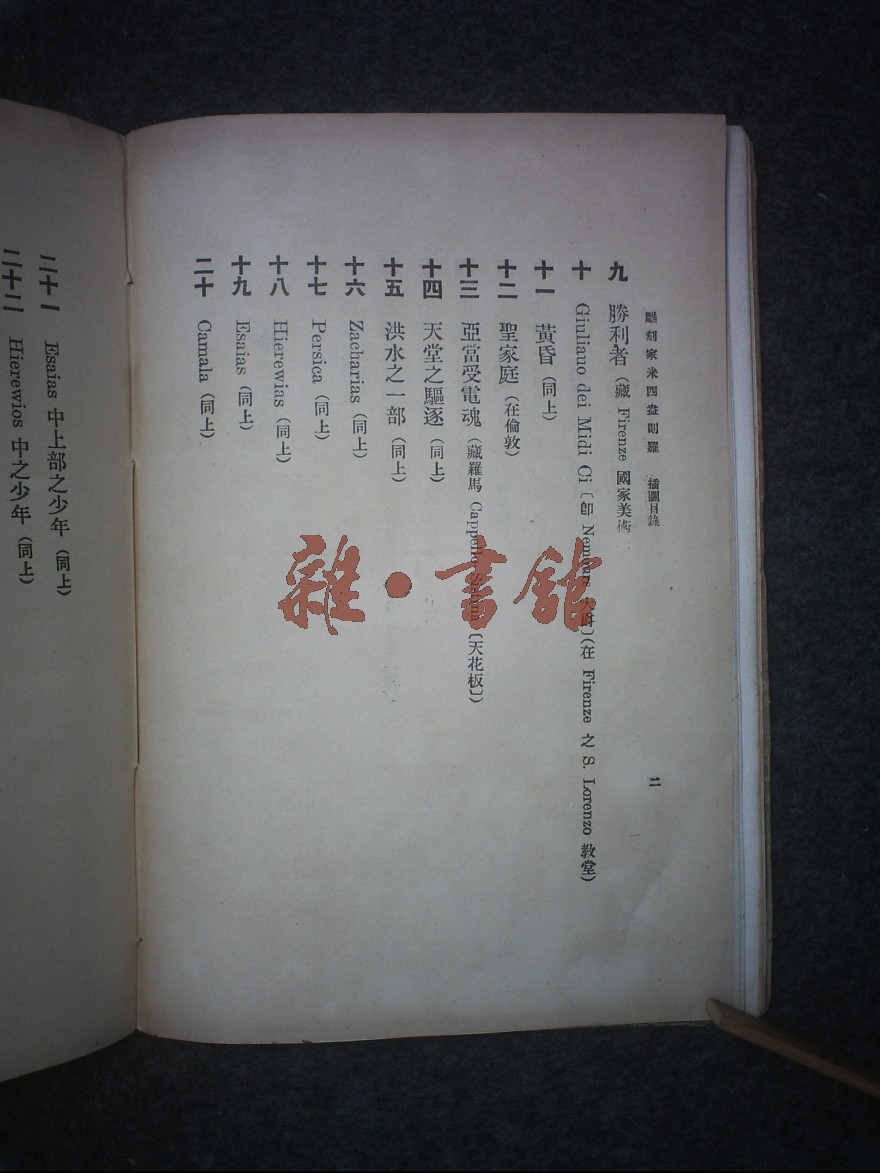 雕刻家米西盎則羅 插圖目錄
二
九 勝利者（藏 Firenze 國家美術
十 Giuliauo dei Midi Ci〔卽 Nemours 〕（在 Firenze 之 S. Lorenzo 教堂）
十一 黃昏（同上）
十二 聖家庭（在倫敦）
十三 亞當受電魂（藏羅馬 Cappella 〔天花板〕）
十四 天堂之驅逐（同上）
十五 洪水之一部（同上）
十六 Zacharias（同上）
十七 Persica（同上）
十八 Hierewias（同上）
十九 Esaias（同上）
二十 Camala（同上）
二十一 Esaias 中上部之少年（同上）
二十二 Hierewios 中之少年（同上）
雜·書館